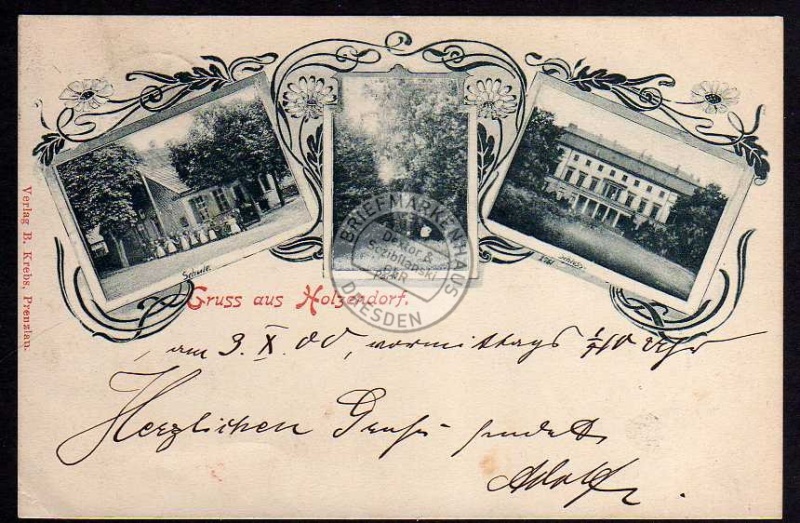 Schule.
Schloss.
Gruss aus Holzendorf.
Verlag B. Krebs, Prenzlau.
BRIEFMARKENHAUS
Dexter &
GbR
DRESDEN
am 3. X. 00, vormittags 1/2 10 Uhr
Herzlichen Gruß sendet
Adolf.